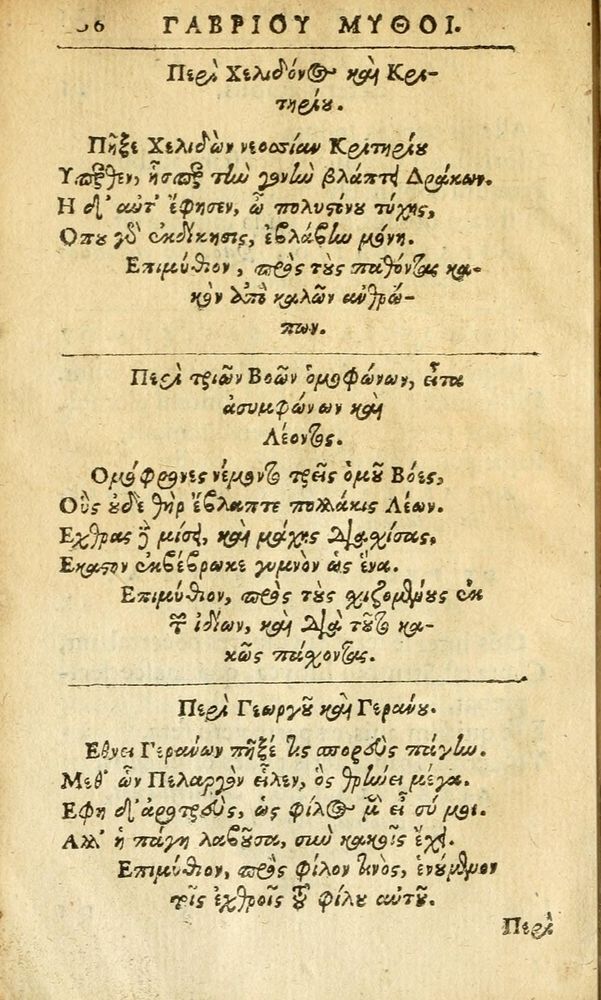 36 ΓΑΒΡΙΟΥ ΜΥΘΟΙ.
Περὶ Χελιδόνος καὶ Κρι-
τηρίου.
Πῆξε Χελιδὼν νεοσίαν Κριτηρίου
Υπερθεν, ἧσπερ τὴν γοντὼ βλάπτει Δράκων.
Η δ' αὖτ' ἔφησεν, ὦ πολυστόνου τύχης,
Οπου γὸ ἐκδίκησις, ἐβλάβην μόνη.
Επιμύθιον, πρὸς τοὺς παθόντας κα-
κὸν ἀπὸ καλῶν ἀνθρώ-
πων.
Περὶ τριῶν Βοῶν ὁμοφώνων, εἶτα
ἀσυμφώνων καὶ
Λέοντος.
Ομόφρονες νέμοντο τρεῖς ὁμοῦ Βόες,
Οὓς οὐδὲ θὴρ ἔβλαπτε πολλάκις Λέων.
Εχθρας ἢ μίσει, καὶ μάχης διαχίσας,
Εκαστον ἐκβέβρωκε γυμνὸν ὡς ἕνα.
Επιμύθιον, πρὸς τοὺς χιζομένους ἐκ
τῶν ἰδίων, καὶ διὰ τοῦτο κα-
κῶς πάχοντας.
Περὶ Γεωργοῦ καὶ Γεράνου.
Εθνει Γεράνων πῆξέ τις σποροὺς πάγην.
Μεθ' ὧν Πελαργὸν εἷλεν, ὃς θρηνεῖ μέγα.
Εφη δ' ἀροτρεὺς, ὡς φίλος μὲν εἶ σύ μοι.
Αλλ' ἡ πάγη λαβοῦσα, σὺν κακοῖς ἔχει.
Επιμύθιον, πρὸς φίλον τινὸς, ἑνούμενον
τοῖς ἐχθροῖς τοῦ φίλου αὐτοῦ.
Περὶ